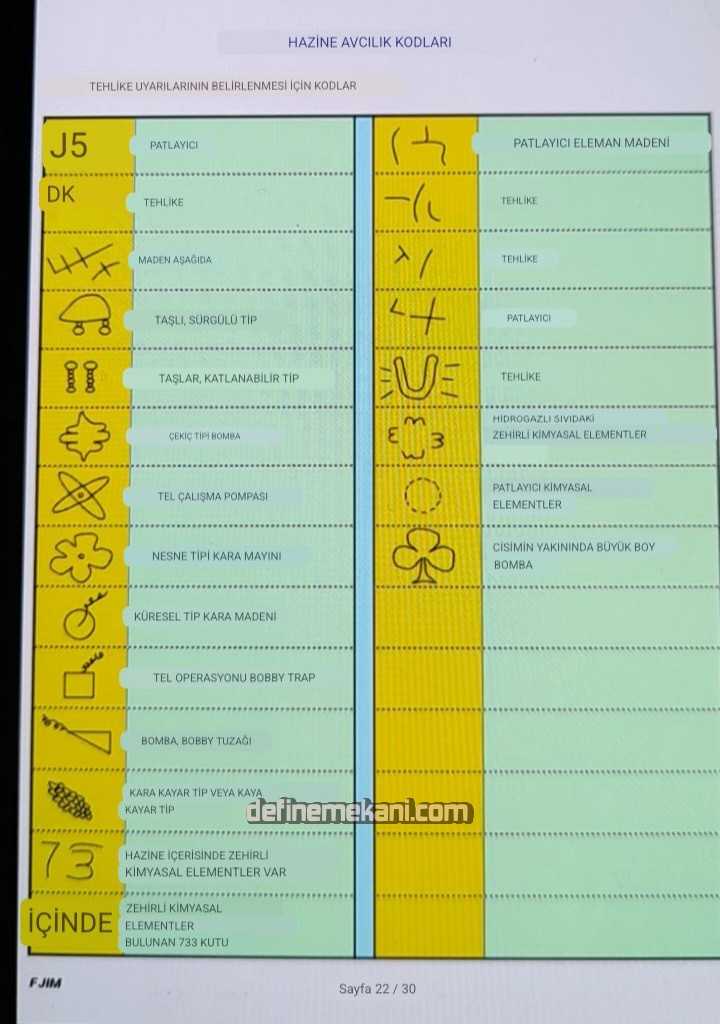 HAZİNE AVCILIK KODLARI
TEHLİKE UYARILARININ BELİRLENMESİ İÇİN KODLAR
J5
PATLAYICI
DK
TEHLİKE
MADEN AŞAĞIDA
TAŞLI, SÜRGÜLÜ TİP
TAŞLAR, KATLANABİLİR TİP
ÇEKİÇ TİPİ BOMBA
TEL ÇALIŞMA POMPASI
NESNE TİPİ KARA MAYINI
KÜRESEL TİP KARA MADENİ
TEL OPERASYONU BOBBY TRAP
BOMBA, BOBBY TUZAĞI
KARA KAYAR TİP VEYA KAYA
KAYAR TİP
73
HAZİNE İÇERİSİNDE ZEHİRLİ
KİMYASAL ELEMENTLER VAR
İÇİNDE
ZEHİRLİ KİMYASAL
ELEMENTLER
BULUNAN 733 KUTU
PATLAYICI ELEMAN MADENİ
TEHLİKE
TEHLİKE
PATLAYICI
TEHLİKE
HİDROGAZLI SIVIDAKİ
ZEHİRLİ KİMYASAL ELEMENTLER
PATLAYICI KİMYASAL
ELEMENTLER
CİSİMİN YAKININDA BÜYÜK BOY
BOMBA
definemekani.com
FJIM
Sayfa 22 / 30